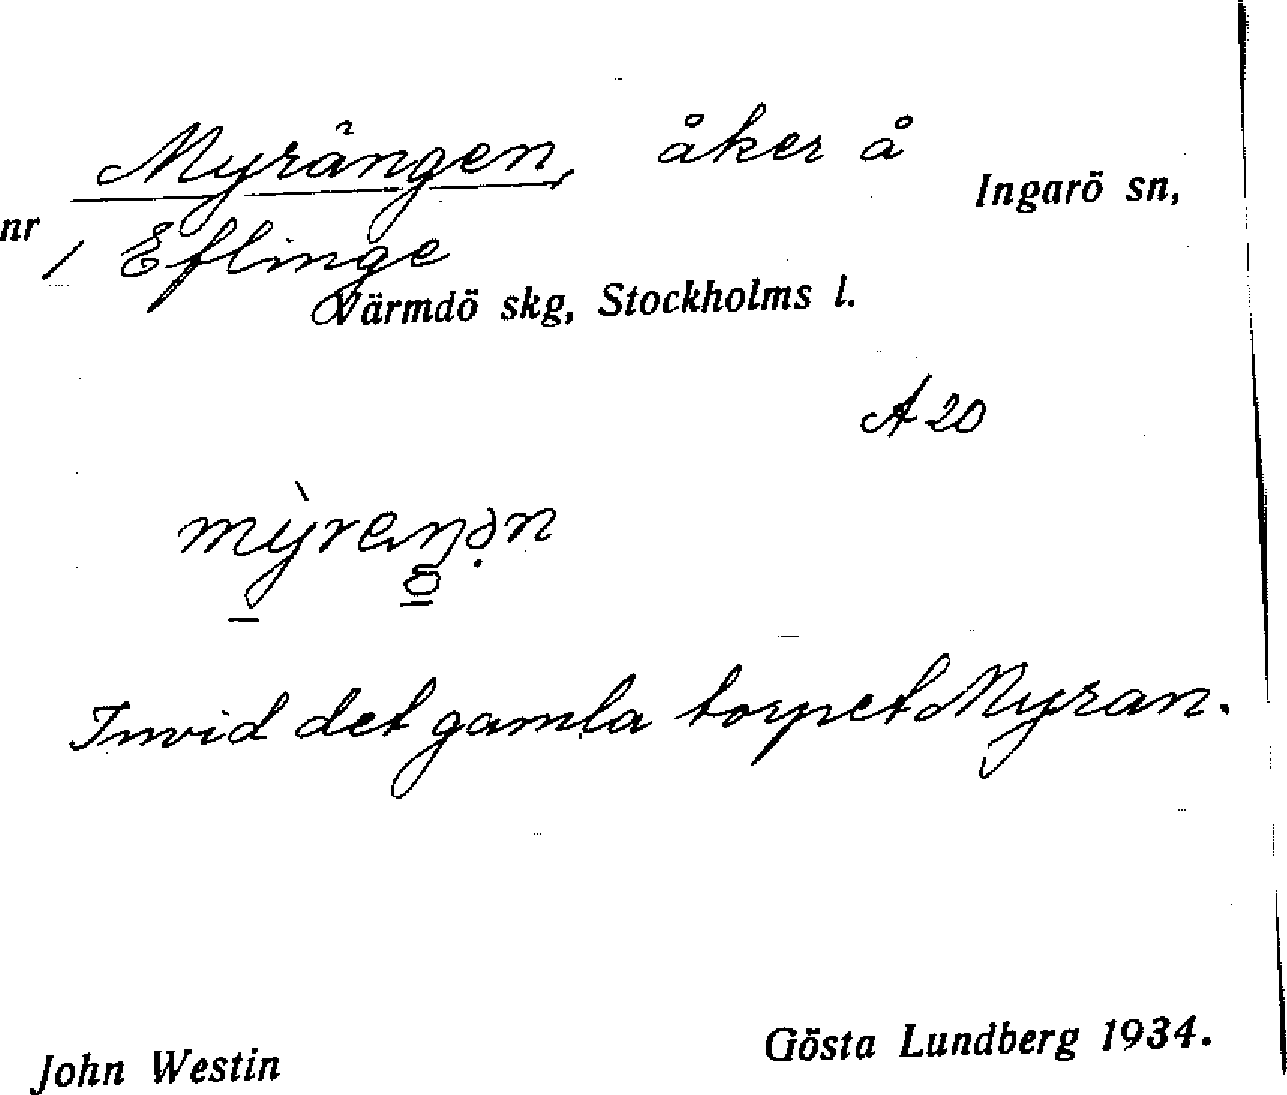 Myrängen, åker å
Ingarö sn,
nr 1 Eflinge
Värmdö skg, Stockholms l.
A 20
mỳ̠reŋə̣n
Invid det gamla torpet Myran.
John Westin
Gösta Lundberg 1934.